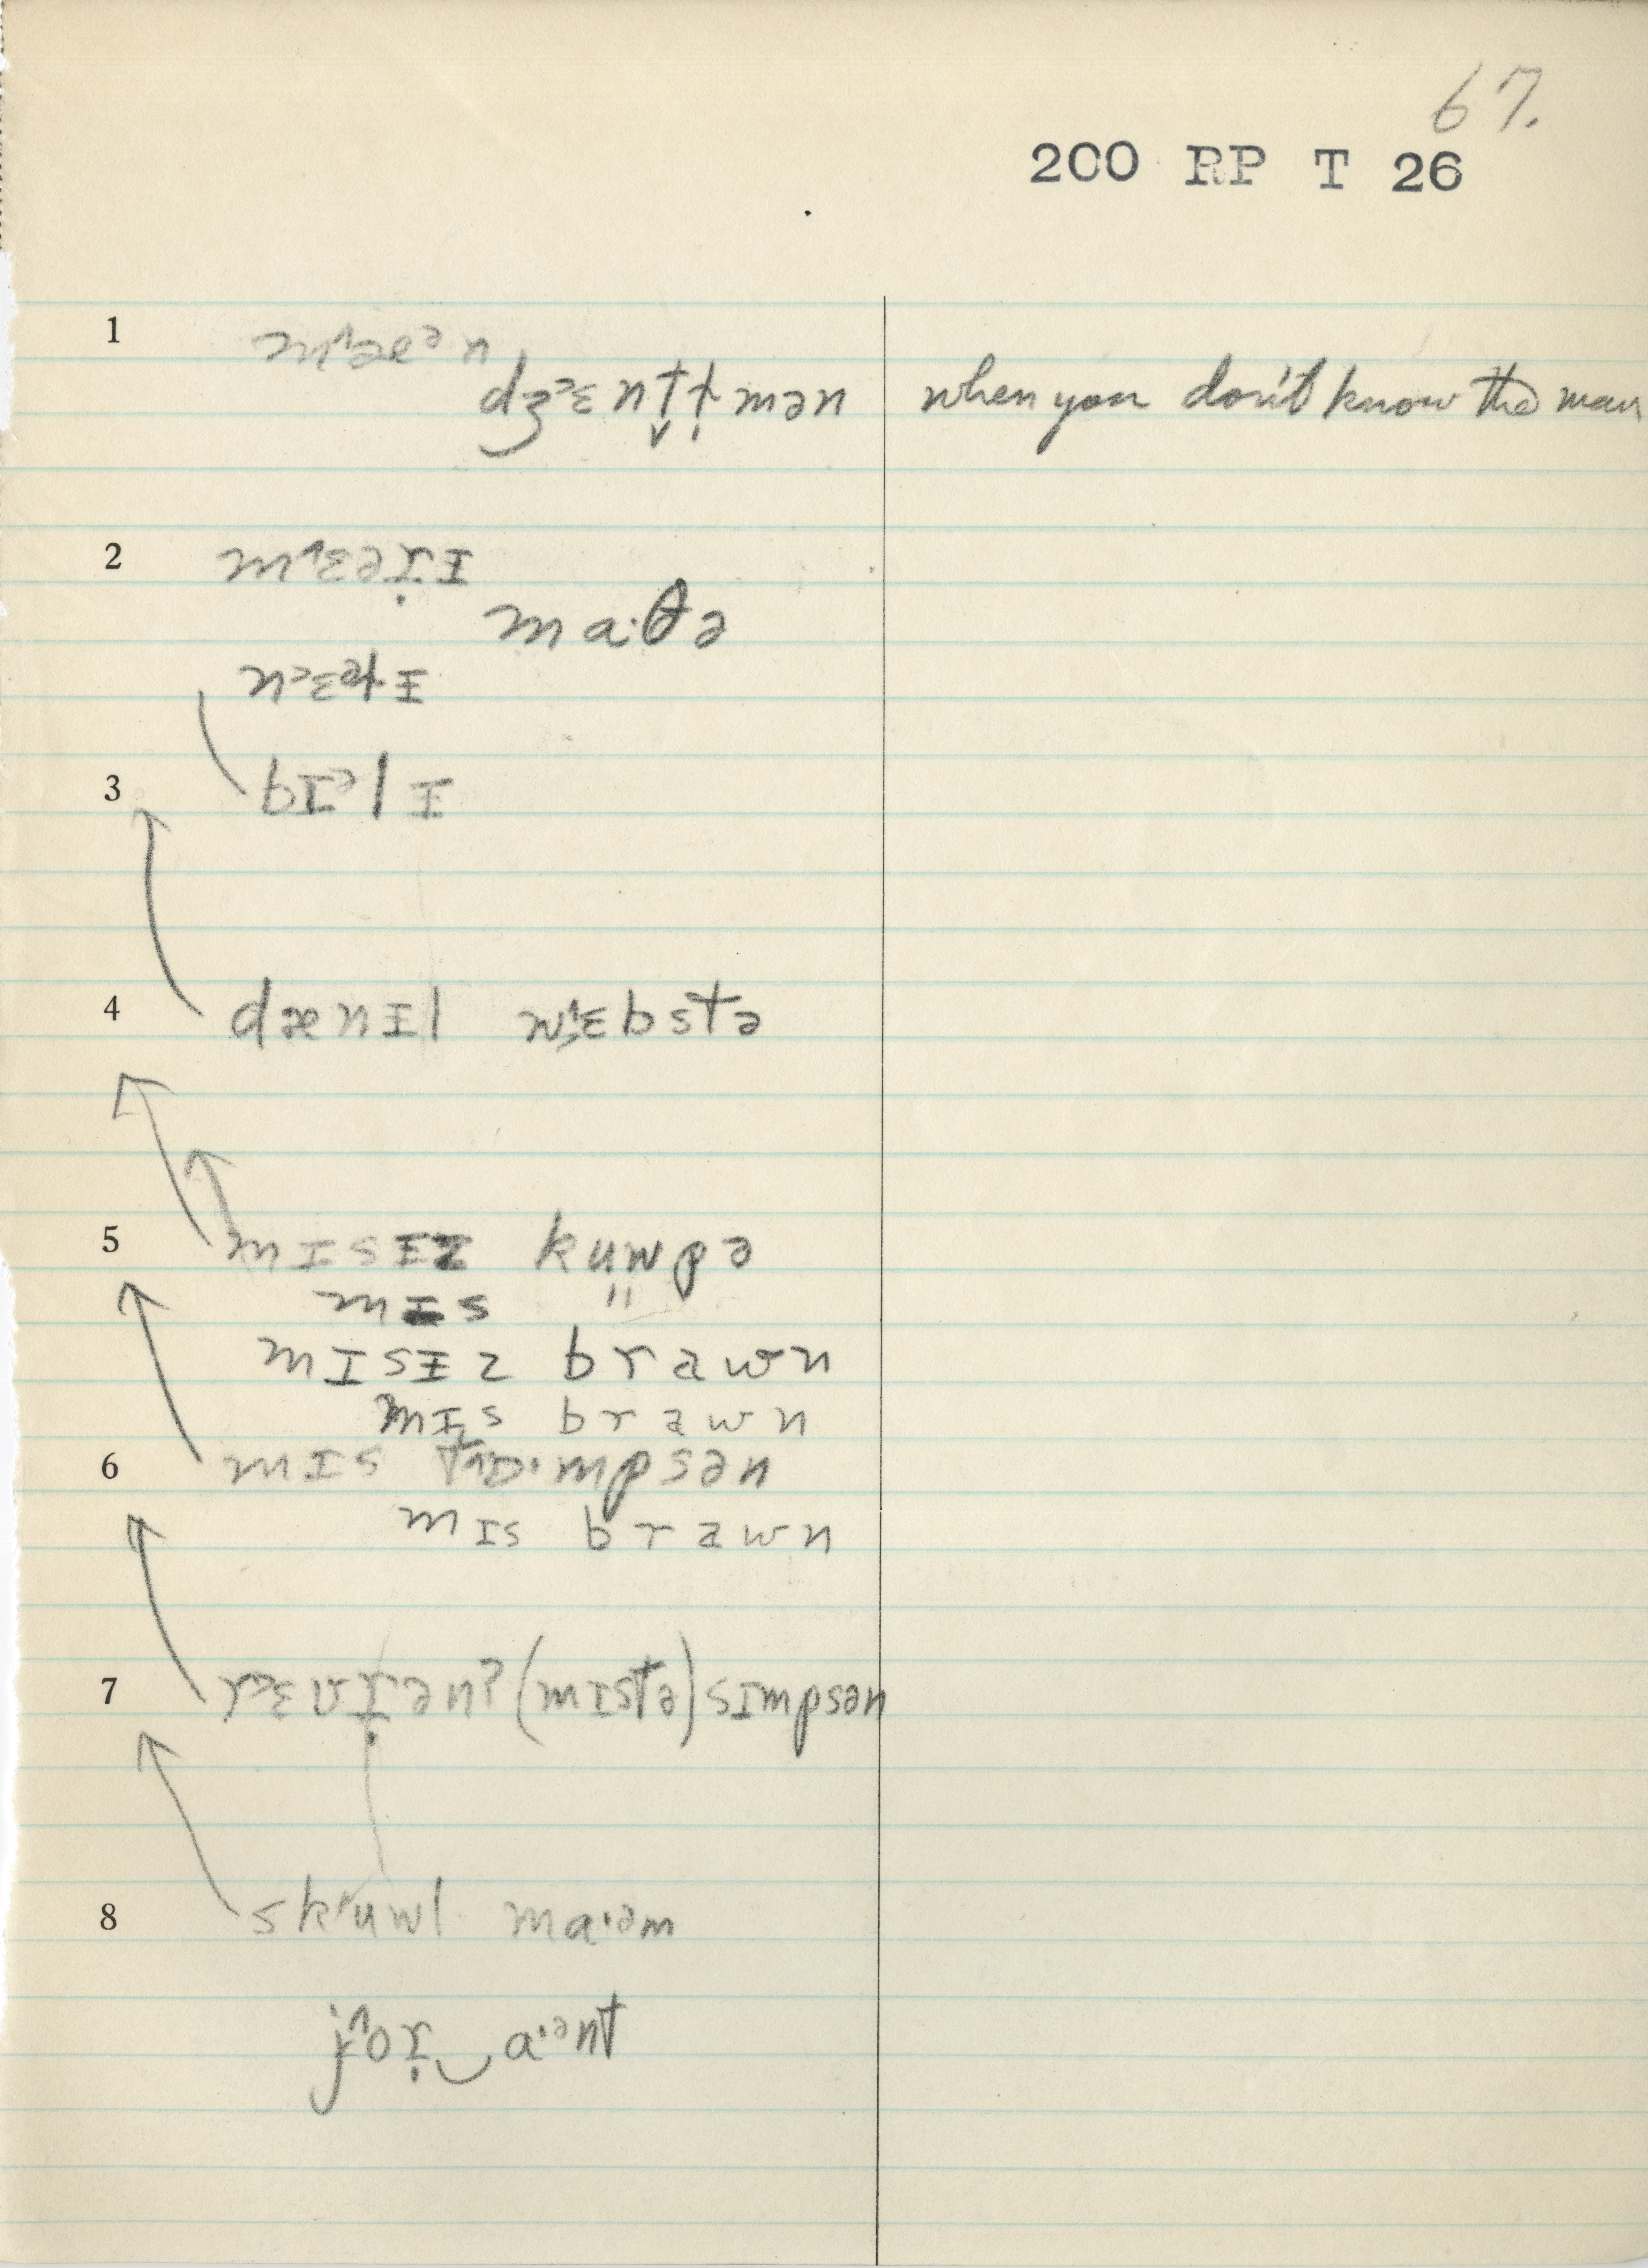 67.
200 RP T 26
1 m^æᵊn
dʒᵋɛntɫ̩mən when you don't know the man
2 m^ɛəṛɪ
ma·θə
nᵋɛᵊlɪ
3 bɪᵊlɪ
4 dænɪl w^ɛbstə
5 mɪsɪz kuwpə
mɪs "
mɪsɪz brawn
mɪs brawn
6 mɪs
mɪs brawn
7 (mɪstə) sɪmpsən
8 sk^uwl ma·əm
j^oṛ‿a·ᵊnt